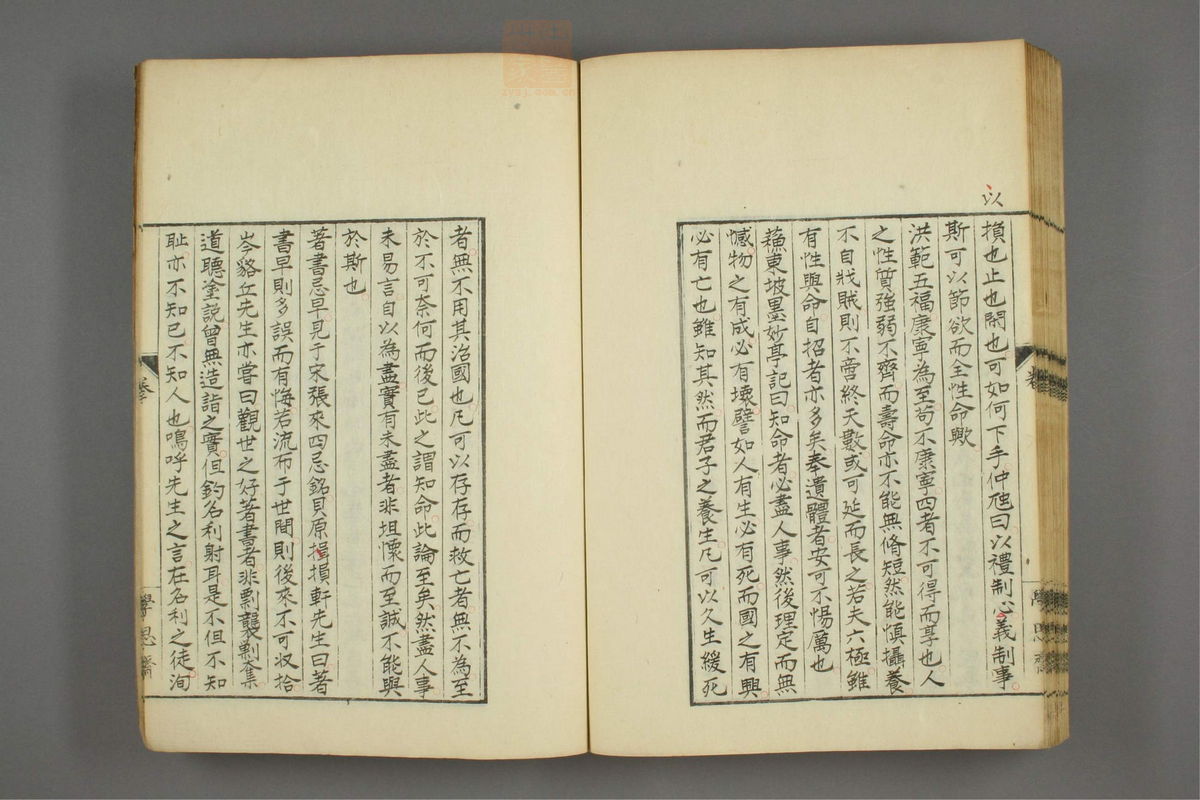 以
損也止也閑也可如何下手仲虺曰以禮制心義制事
斯可以節欲而全性命歟
洪範五福康寧為至苟不康寧四者不可得而享也人
之性質強弱不齊而壽命亦不能無脩短然能慎攝養
不自戕賊則不啻終天數或可延而長之若夫六極雖
有性與命自招者亦多矣奉遺體者安可不惕厲也
蘓東坡墨妙亭記曰知命者必盡人事然後理定而無
憾物之有成必有壞譬如人有生必有死而國之有興
必有亡也雖知其然而君子之養生凡可以久生緩死
者無不用其治國也凡可以存存而救亡者無不為至
於不可奈何而後已此之謂知命此論至矣然盡人事
未易言自以為盡實有未盡者非坦懷而至誠不能與
於斯也
著書忌早見于宋張來四忌銘貝原損損軒先生曰著
書早則多誤而有悔若流布于世間則後來不可収拾
岑貉丘先生亦嘗曰觀世之好著書者非剽襲剿奪集
道聽塗説曾無造詣之實但釣名利射耳是不但不知
耻亦不知已不知人也鳴呼先生之言在名利之徒洵
學思齋